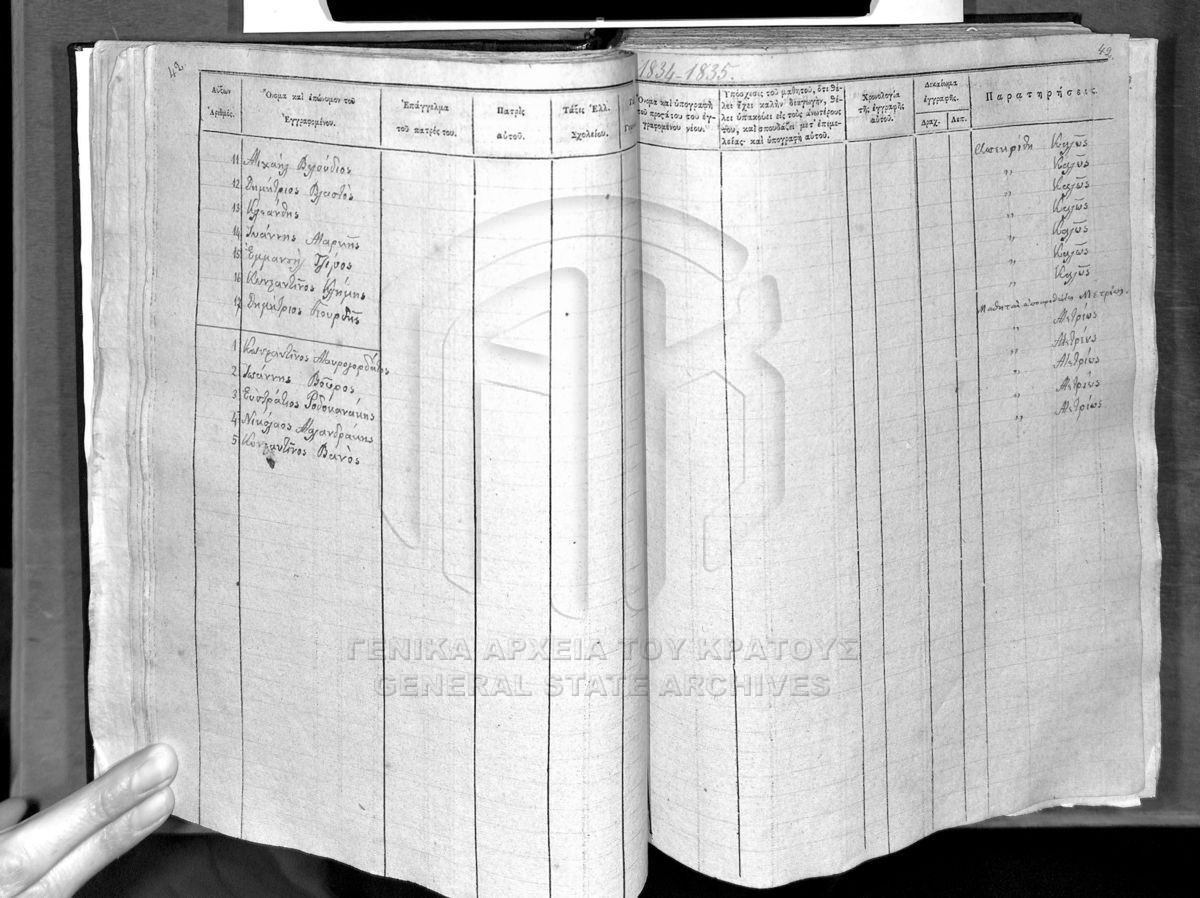 42
42
1834-1835.
Αὔξων Ἀριθμός.
Ὄνομα καὶ ἐπώνυμον τοῦ Ἐγγραφομένου.
Ἐπάγγελμα τοῦ πατρός του.
Πατρὶς αὐτοῦ.
Τάξις Ἑλλ. Σχολείου.
Ὄνομα καὶ ὑπογραφὴ τοῦ προστάτου τοῦ ἐγγραφομένου νέου.
Ὑπόσχεσις τοῦ μαθητοῦ, ὅτι θέλει ἔχει καλὴν διαγωγὴν, θέλει ὑπακούει εἰς τοὺς ἀνωτέρους του, καὶ σπουδάζει μετ' ἐπιμελείας· καὶ ὑπογραφὴ αὐτοῦ.
Χρονολογία τῆς ἐγγραφῆς αὐτοῦ.
Δικαίωμα ἐγγραφῆς.
Δραχ. Λεπ.
Παρατηρήσεις.
11 Μιχαὴλ Καλῶς
12 Δημήτριος Βλαστὸς „ Καλῶς
13 Κλεάνθης „ Καλῶς
14 Ἰωάννης „ Καλῶς
15 Ἐμμανουὴλ „ Καλῶς
16 Κωνσταντῖνος „ Καλῶς
17 Δημήτριος „ Καλῶς
1 Κωνσταντῖνος Μαυρογορδάτος Μετρίως.
2 Ἰωάννης Βοῦρος „ Μετρίως
3 Εὐστράτιος Ῥοδοκανάκης „ Μετρίως
4 Νικόλαος „ Μετρίως
5 Κωνσταντῖνος „ Μετρίως
„ Μετρίως
ΓΕΝΙΚΑ ΑΡΧΕΙΑ ΤΟΥ ΚΡΑΤΟΥΣ
GENERAL STATE ARCHIVES